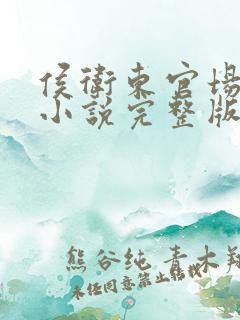 侯衛東官場
小說完整版
熊谷纯 青木翔
未经同意禁止转载